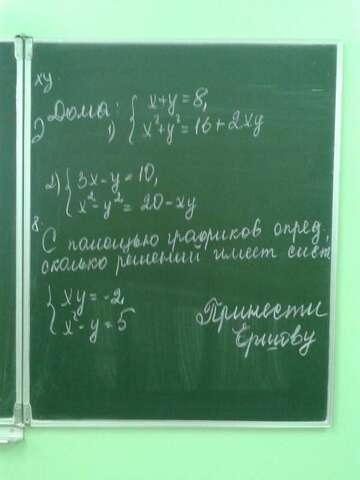 xy
Дома: 1) { x+y=8,
x²+y²=16+2xy
2) { 3x-y=10,
x²-y²=20-xy
8.
С помощью графиков опред.,
сколько решений имеет сист.
{ xy=-2,
x²-y=5
Принести
Ершову